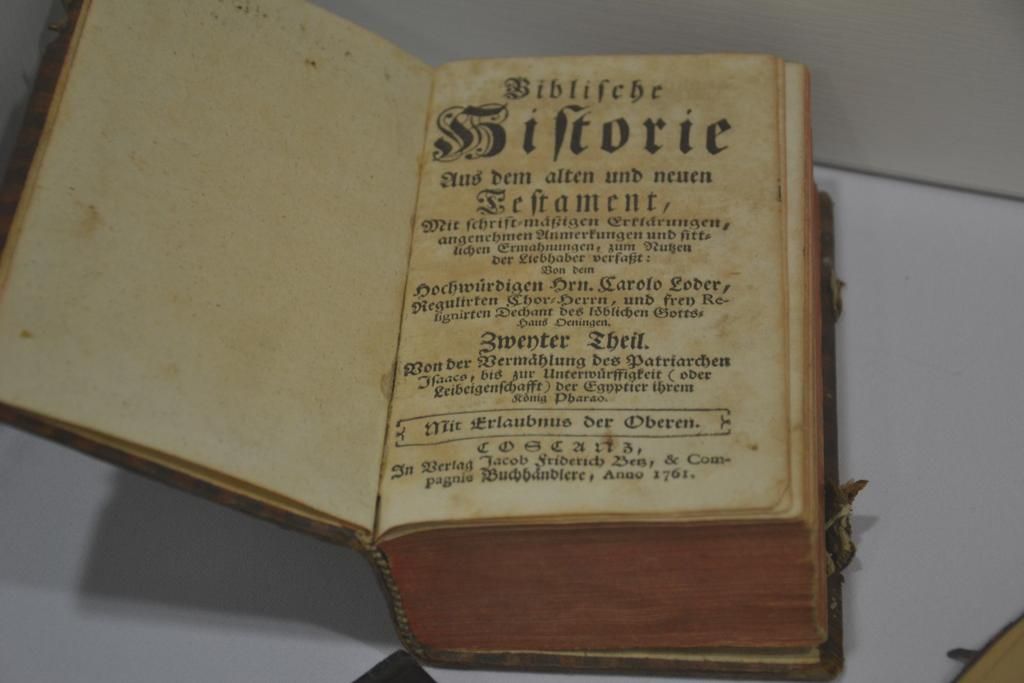 Biblische
Historie
Aus dem alten und neuen
Testament,
Mit schrift-mäßigen Erklärungen,
angenehmen Anmerkungen und sitt-
lichen Ermahnungen, zum Nutzen
der Liebhaber verfaßt:
Von dem
Hochwürdigen Hrn. Carolo Loder,
Regulirten Chor-Herrn, und frey Re-
signirten Dechant des löblichen Gotts-
Haus Oeningen.
Zweyter Theil.
Von der Vermählung des Patriarchen
Isaacs, bis zur Unterwürffigkeit (oder
Leibeigenschafft) der Egyptier ihrem
König Pharao.
Mit Erlaubnus der Oberen.
COSTANZ,
In Verlag Jacob Friderich Betz, & Com-
pagnie Buchhändlere, Anno 1761.